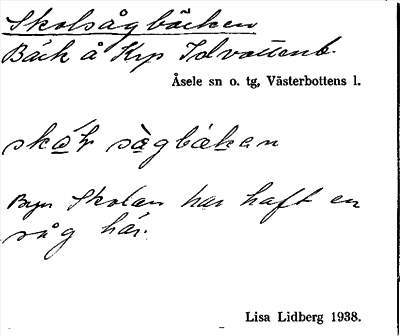 Skolsågbäcken
Bäck å Krp Idvattenb.
Åsele sn o. tg, Västerbottens l.
sågbäkan
Byn Skolan har haft en
såg här.
Lisa Lidberg 1938.